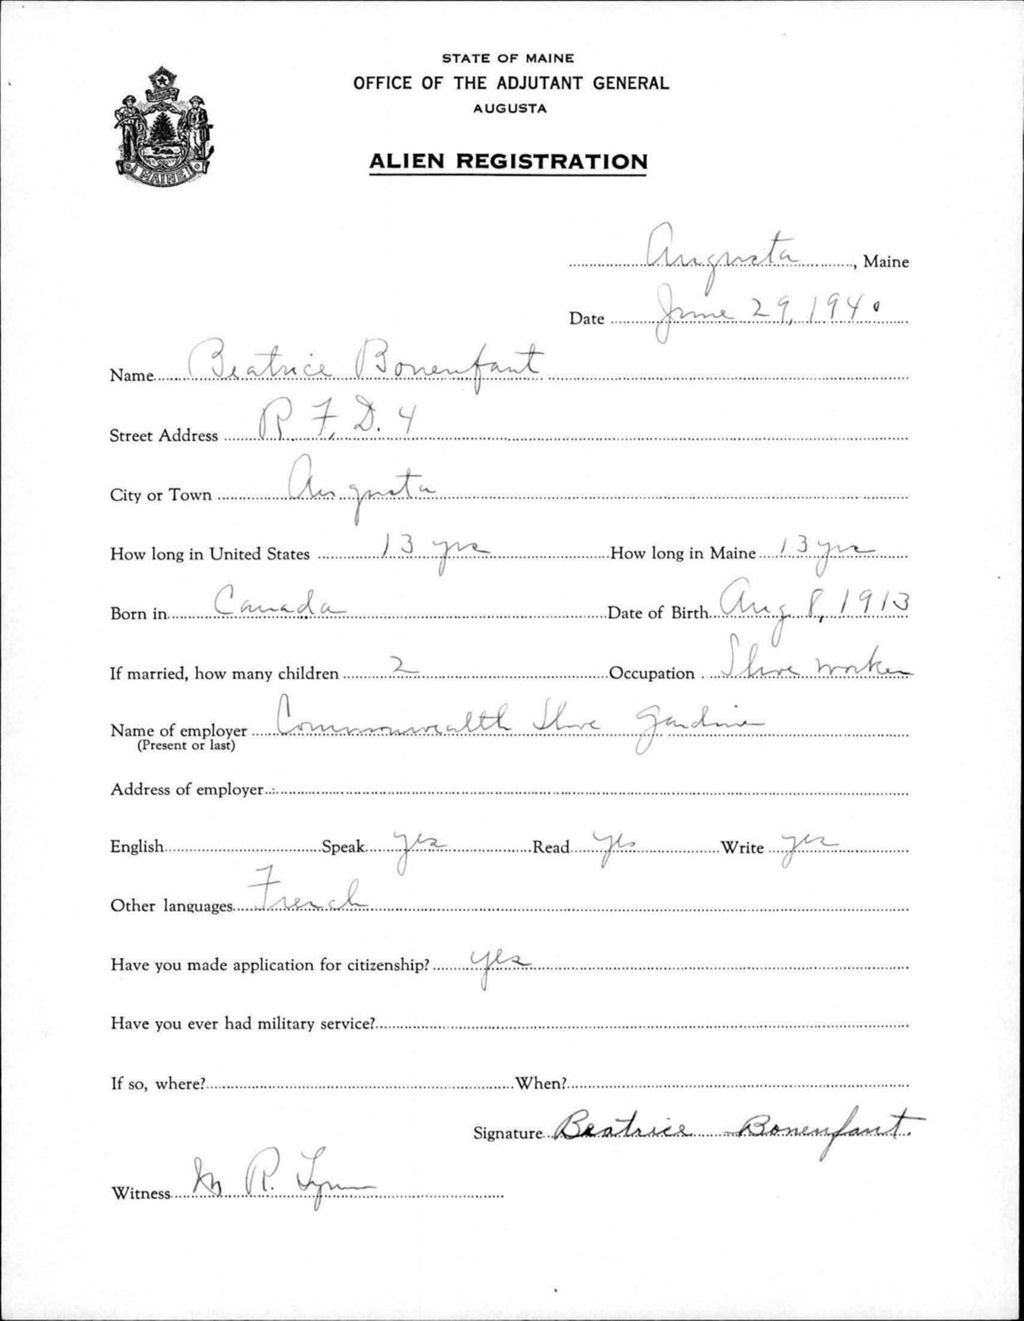 STATE OF MAINE
OFFICE OF THE ADJUTANT GENERAL
AUGUSTA
ALIEN REGISTRATION
MAINE
Augusta, Maine
Date June 29, 1940
Name Beatrice Bonenfant
Street Address R. F. D. 4
City or Town Augusta
How long in United States 13 yrs How long in Maine 13 yrs
Born in Canada Date of Birth Aug 8, 1913
If married, how many children 2 Occupation Shoe worker
Name of employer Commonwealth Shoe Gardiner
(Present or last)
Address of employer
English Speak yes Read yes Write yes
Other languages French
Have you made application for citizenship? yes
Have you ever had military service?
If so, where? When?
Signature Beatrice Bonenfant.
Witness M R. Lynn